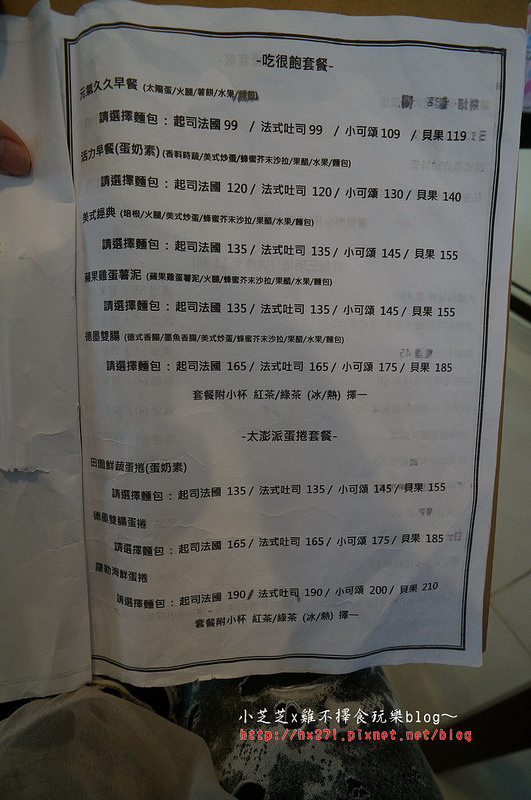 -吃很飽套餐-
元氣久久早餐 (太陽蛋/火腿/薯餅/水果/麵包)
請選擇麵包：起司法國 99 / 法式吐司 99 / 小可頌 109 / 貝果 119
活力早餐(蛋奶素) (香料時蔬/美式炒蛋/蜂蜜芥末沙拉/果醋/水果/麵包)
請選擇麵包：起司法國 120 / 法式吐司 120 / 小可頌 130 / 貝果 140
美式經典 (培根/火腿/美式炒蛋/蜂蜜芥末沙拉/果醋/水果/麵包)
請選擇麵包：起司法國 135 / 法式吐司 135 / 小可頌 145 / 貝果 155
蘋果雞蛋薯泥 (蘋果雞蛋薯泥/火腿/蜂蜜芥末沙拉/果醋/水果/麵包)
請選擇麵包：起司法國 135 / 法式吐司 135 / 小可頌 145 / 貝果 155
德墨雙腸 (德式香腸/墨魚香腸/美式炒蛋/蜂蜜芥末沙拉/果醋/水果/麵包)
請選擇麵包：起司法國 165 / 法式吐司 165 / 小可頌 175 / 貝果 185
套餐附小杯 紅茶/綠茶 (冰/熱) 擇一
-太澎派蛋捲套餐-
田園鮮蔬蛋捲(蛋奶素)
請選擇麵包：起司法國 135 / 法式吐司 135 / 小可頌 145 / 貝果 155
德墨雙腸蛋捲
請選擇麵包：起司法國 165 / 法式吐司 165 / 小可頌 175 / 貝果 185
羅勒海鮮蛋捲
請選擇麵包：起司法國 190 / 法式吐司 190 / 小可頌 200 / 貝果 210
套餐附小杯 紅茶/綠茶 (冰/熱) 擇一
小芝芝x雞不擇食玩樂blog～
http://hx371.pixnet.net/blog